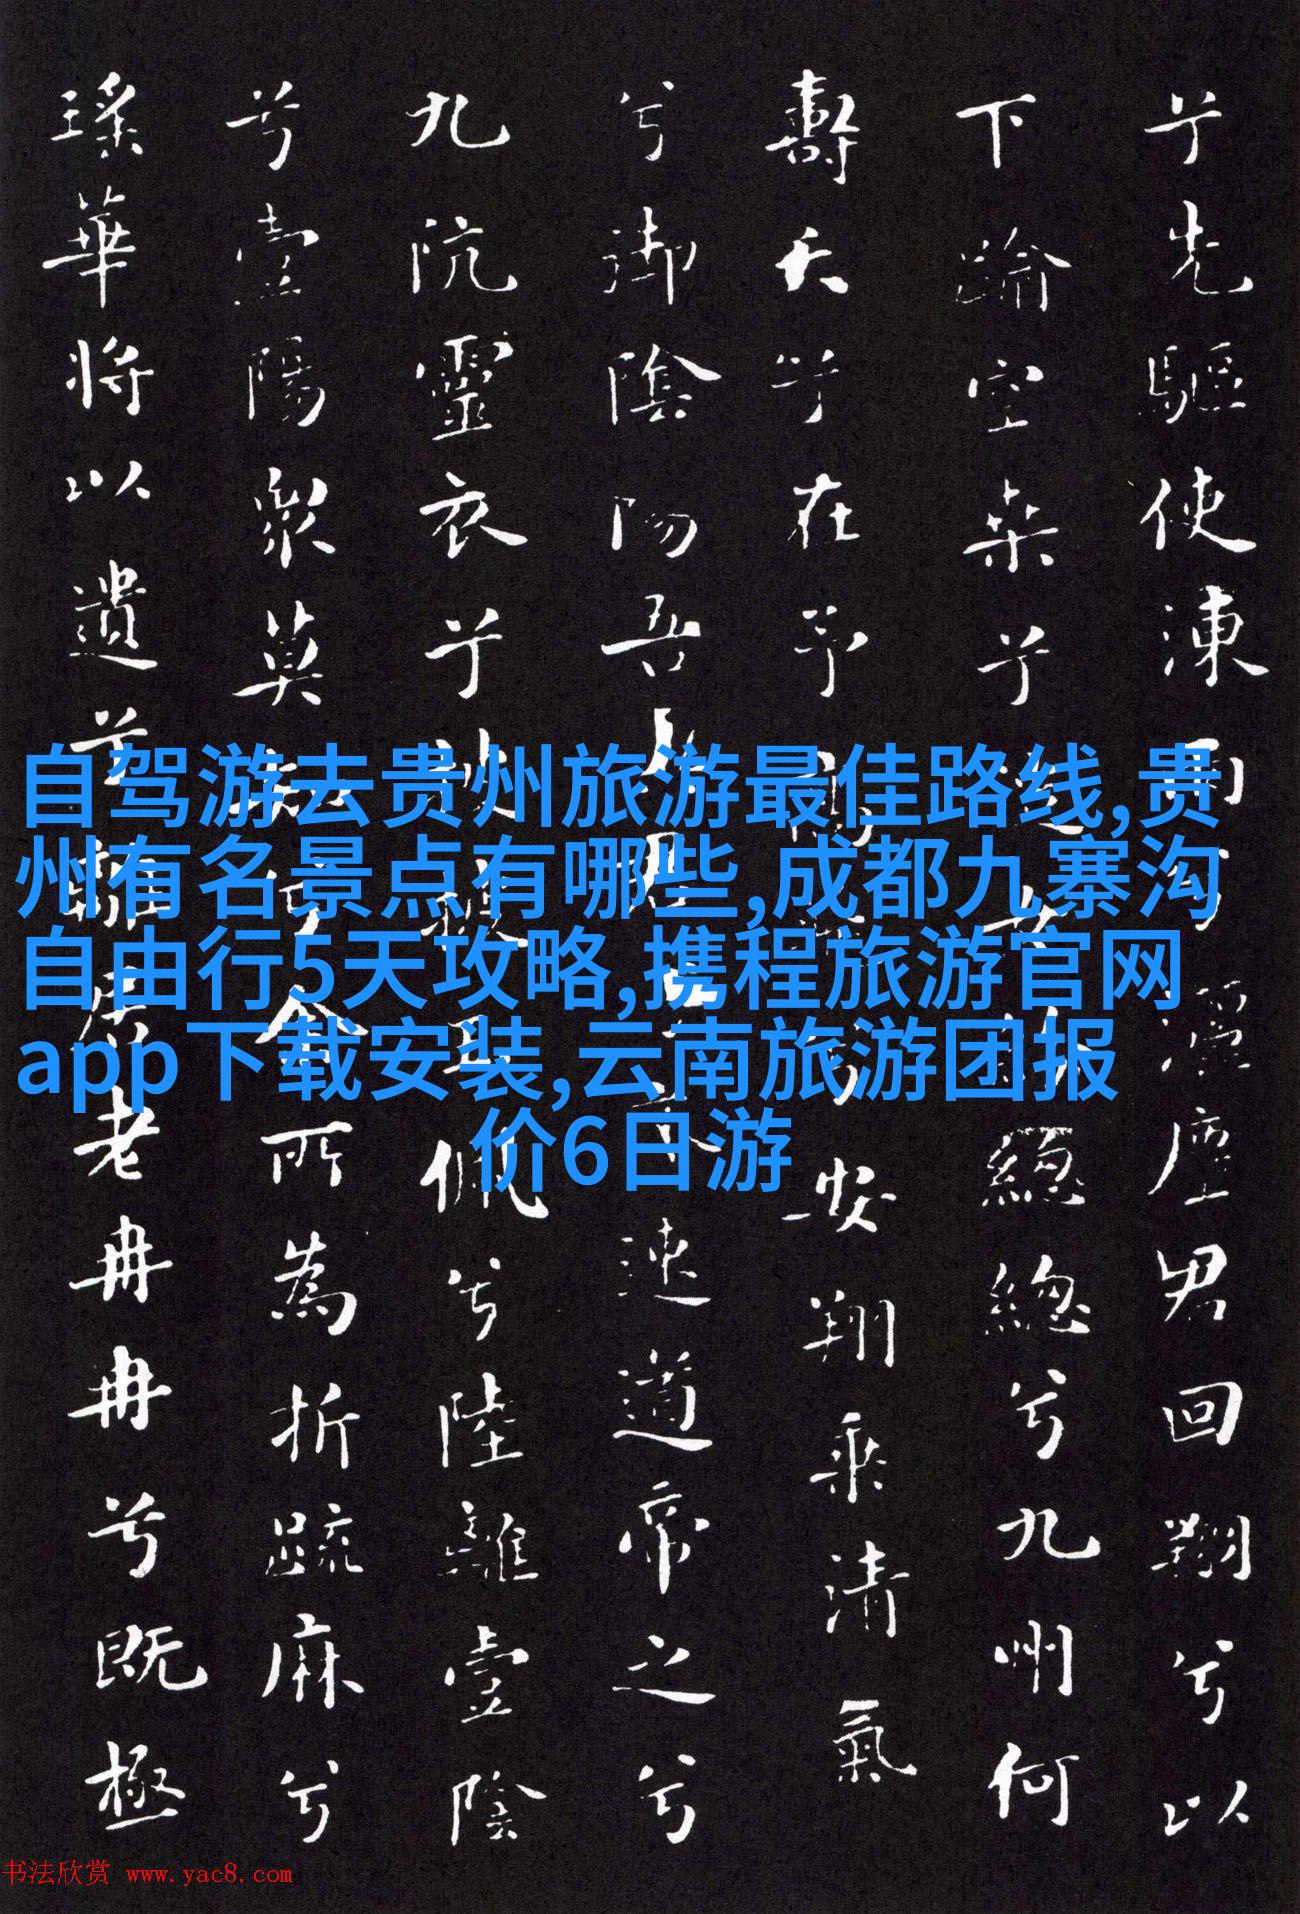 兮先驅使涷雨兮灑塵君回翔兮以
下踰空桑兮從女紛總總兮九州何
壽夭兮在予高飛兮安翔乘清氣
兮御陰陽吾與君兮速道帝之兮
九阬靈衣兮被玉佩兮陸離壹陰
兮壹陽眾莫知兮余所為折疏麻兮
瑤華將以遺兮離居老冉冉兮既極
自驾游去贵州旅游最佳路线,贵
州有名景点有哪些,成都九寨沟
自由行5天攻略,携程旅游官网
app下载安装,云南旅游团报
价6日游
书法欣赏 www.yac8.com